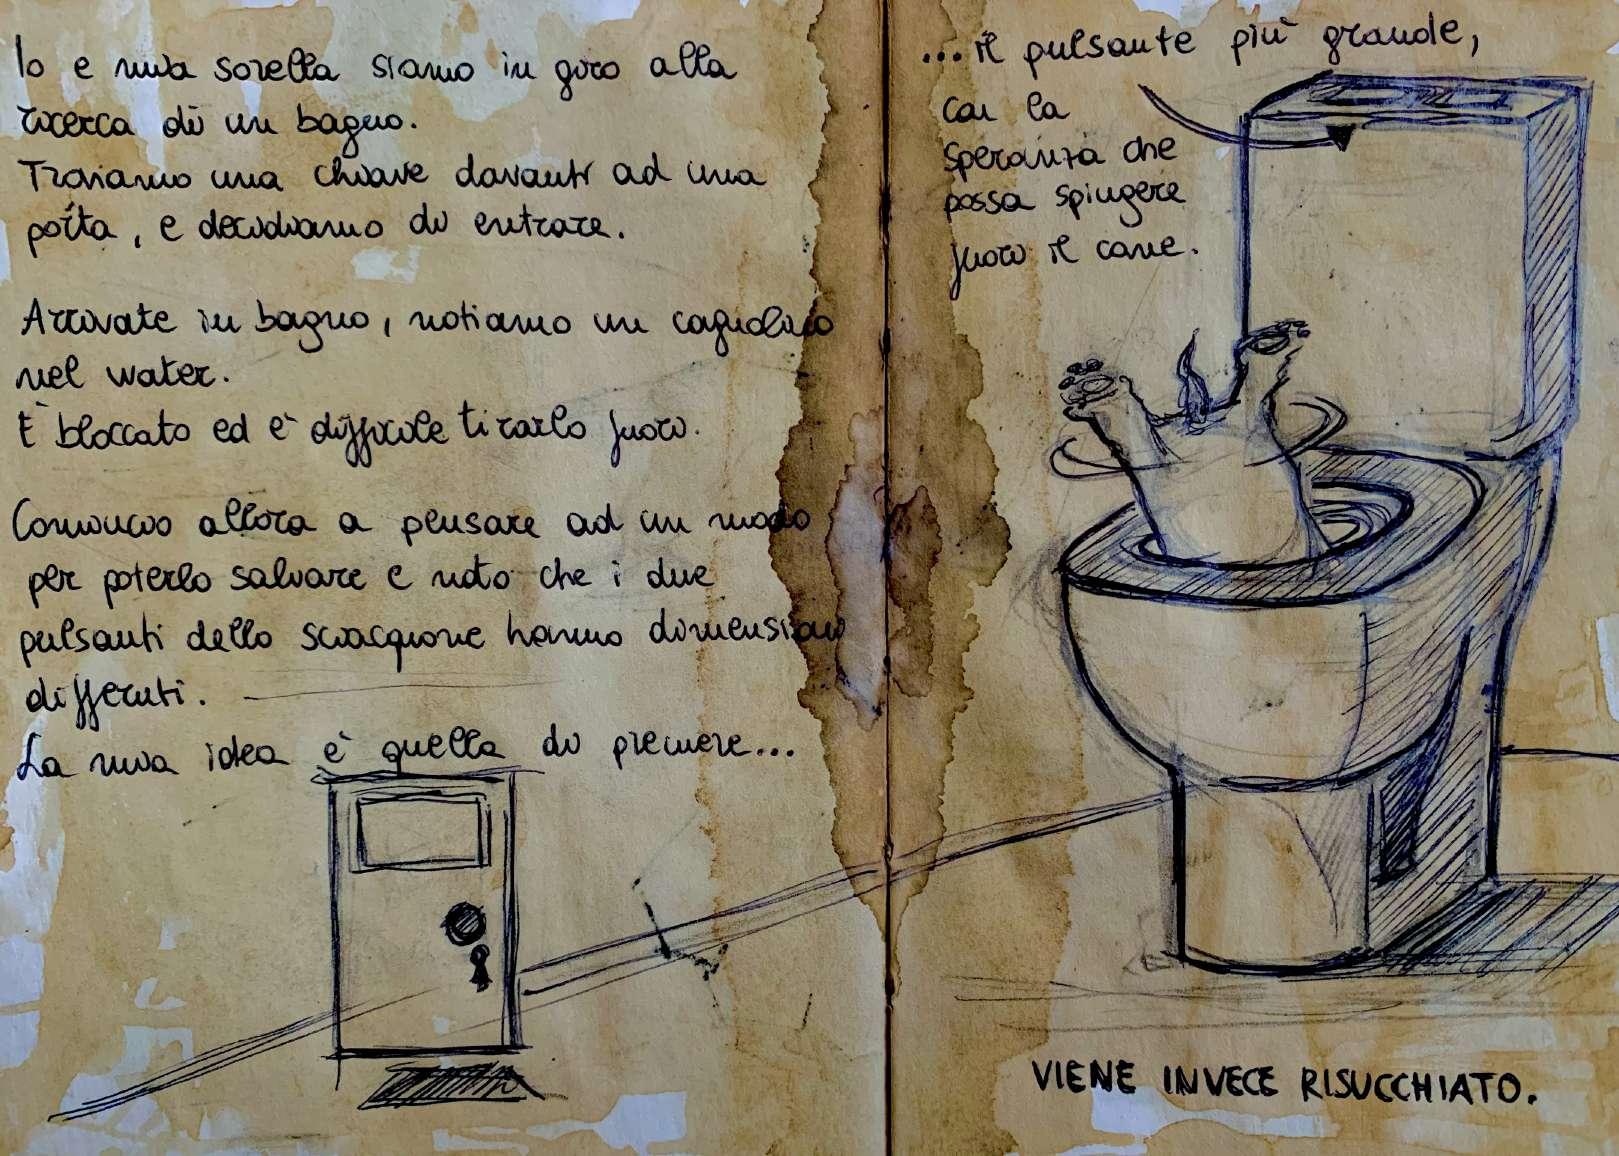 Io e mia sorella siamo in giro alla
ricerca di un bagno.
Troviamo una chiave davanti ad una
porta, e decidiamo di entrare.
Arrivate in bagno, notiamo un cagnolino
nel water.
È bloccato ed è difficile tirarlo fuori.
Comincio allora a pensare ad un modo
per poterlo salvare e noto che i due
pulsanti dello sciacquone hanno dimensioni
differenti.
La mia idea è quella di premere...
...il pulsante più grande,
con la
speranza che
possa spingere
fuori il cane.
VIENE INVECE RISUCCHIATO.